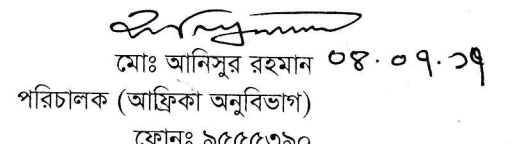 মোঃ আনিসুর রহমান ০৪.০৭.১৭
পরিচালক (আফ্রিকা অনুবিভাগ)
ফোনঃ ৯৫৫৫৩৯০